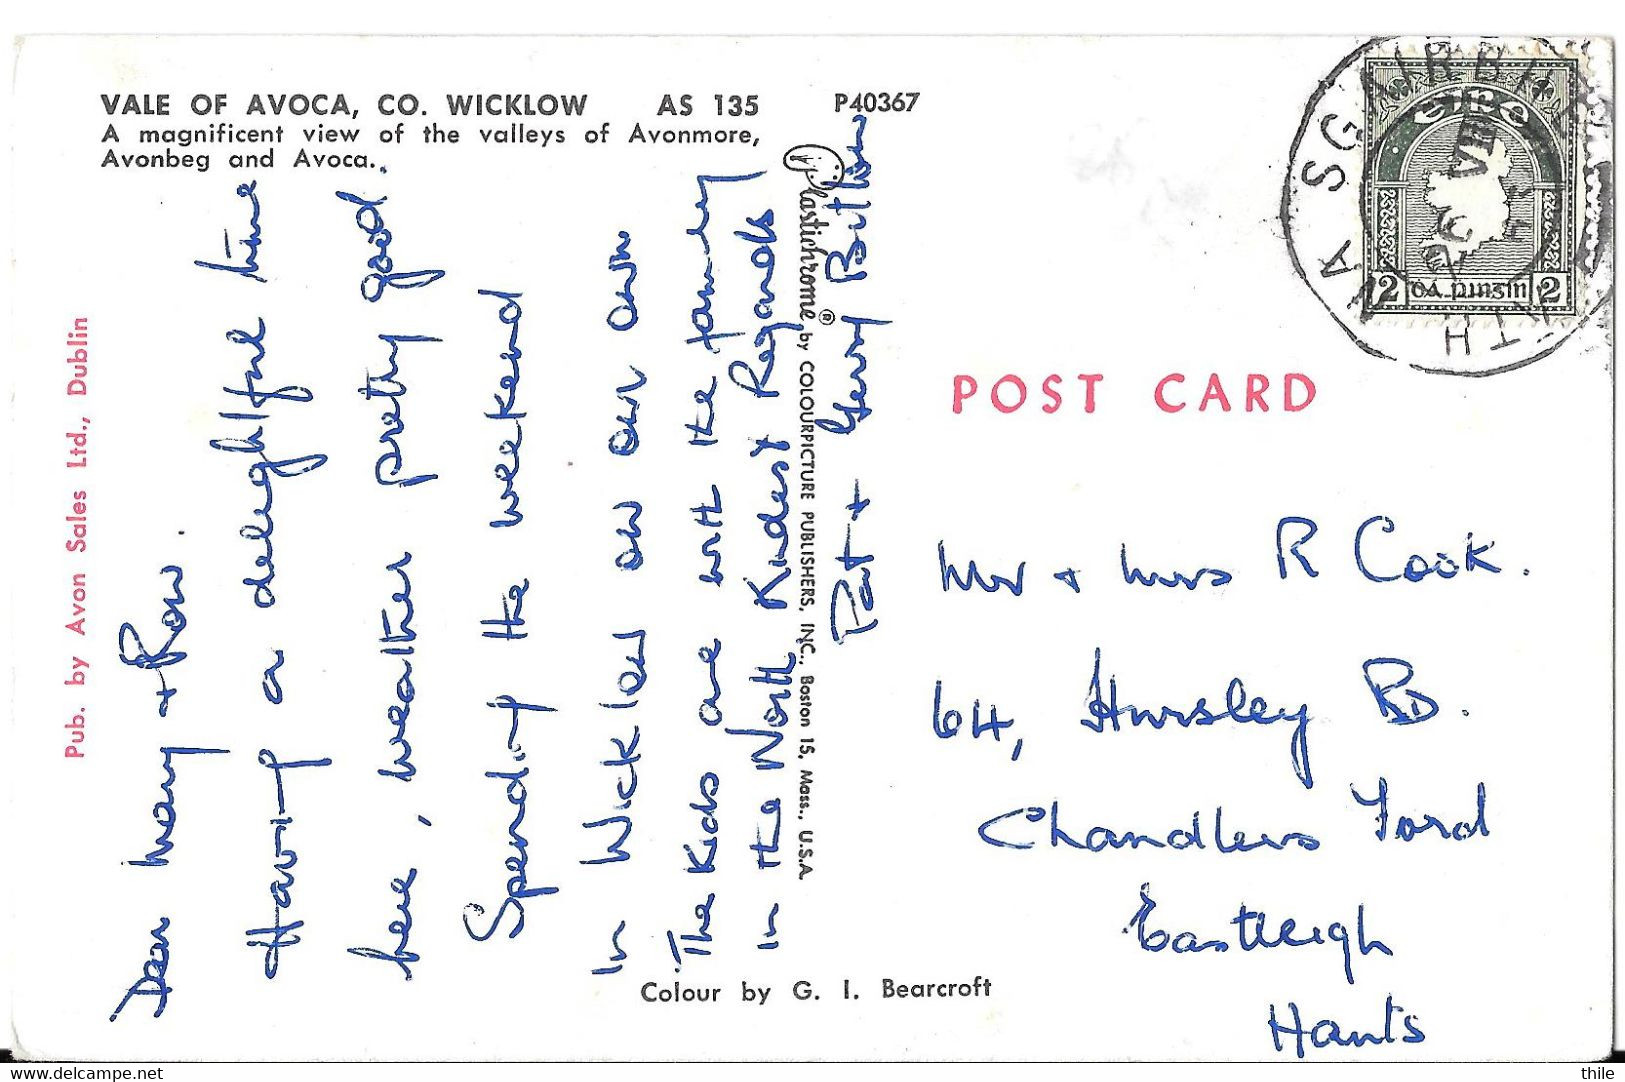 VALE OF AVOCA, CO. WICKLOW AS 135 P40367
A magnificent view of the valleys of Avonmore,
Avonbeg and Avoca.
Pub. by Avon Sales Ltd., Dublin
Dear Mary + Row.
Having a delightful time
here, weather pretty good.
Spending the weekend
in Wicklow on our own
The Kids are with the family
in the North Kindest Regards
Pat + Gerry
Plastichrome ® by COLOURPICTURE PUBLISHERS, INC., Boston 15, Mass., U.S.A.
Colour by G. I. Bearcroft
POST CARD
2 DÁ PINGIN 2
Mr + Mrs R Cook.
64, Hursley RD.
Chandlers Ford
Eastleigh
Hants
delcampe.net
thile